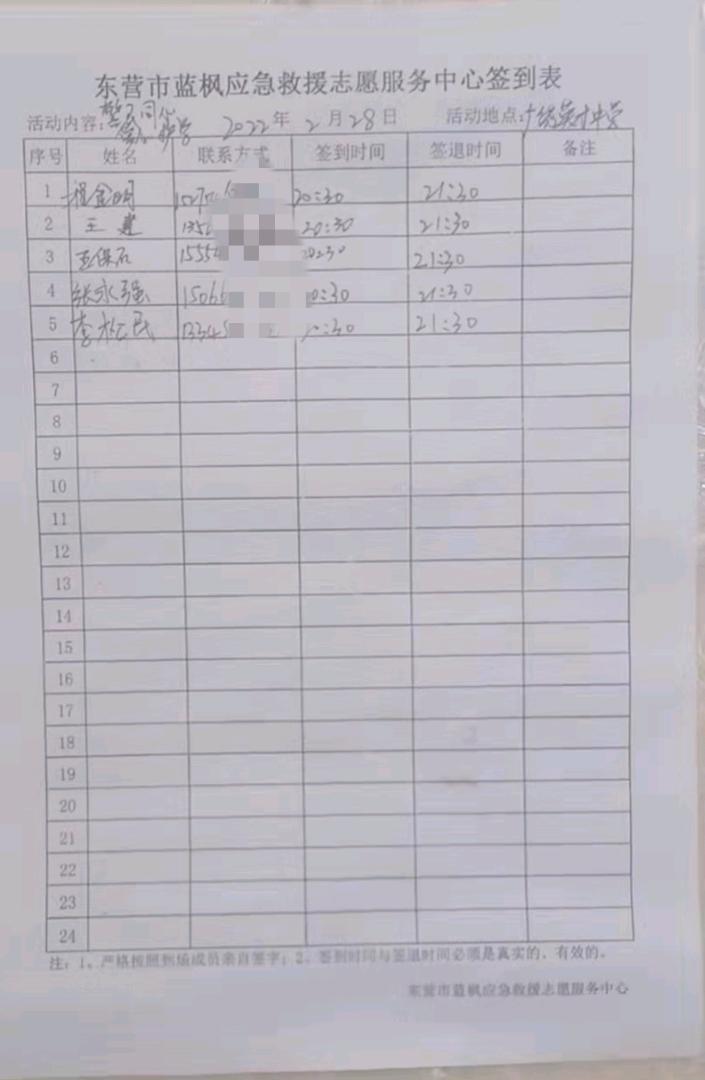 东营市蓝枫应急救援志愿服务中心签到表
警民同心
活动内容: 护学 2022年 2月28日 活动地点:
序号 姓名 联系方式 签到时间 签退时间 备注
1 程金明 1527 20:30 21:30
2 王建 135 20:30 21:30
3 王保石 1555 20:30 21:30
4 张永强 1506 0:30 21:30
5 李松民 13345 :30 21:30
6
7
8
9
10
11
12
13
14
15
16
17
18
19
20
21
22
23
24
注:1、严格按照到场成员亲自签字;2、签到时间与签退时间必须是真实的、有效的。
东营市蓝枫应急救援志愿服务中心